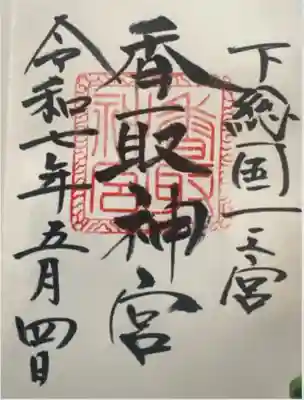 下総国一之宮
香取神宮
令和七年五月四日